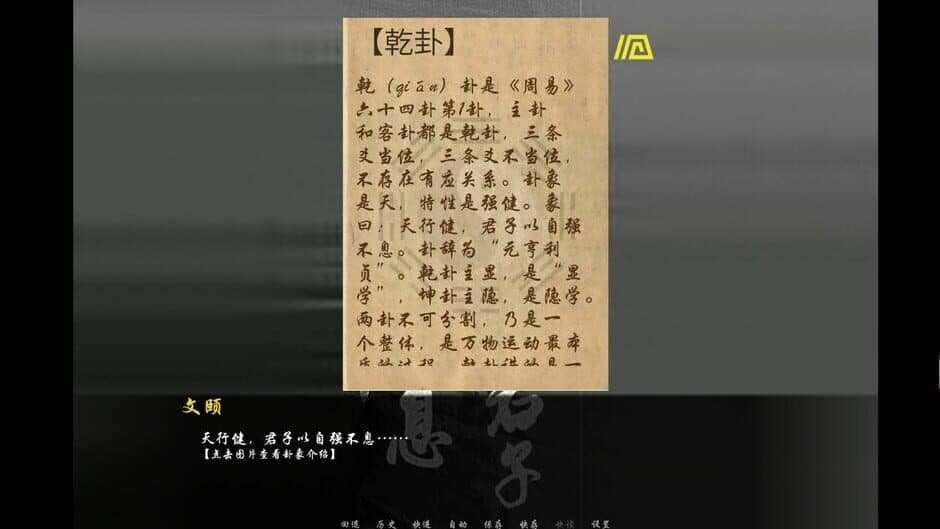 【乾卦】
乾（qiān）卦是《周易》
六十四卦第1卦，主卦
和客卦都是乾卦，三条
爻当位，三条爻不当位，
不存在有应关系。卦象
是天，特性是强健。象
曰：天行健，君子以自强
不息。卦辞为“元亨利
贞”。乾卦主显，是“显
学”，坤卦主隐，是隐学。
两卦不可分割，乃是一
个整体，是万物运动最本
文颐
天行健，君子以自强不息……
【点击图片查看卦象介绍】
君子
息
回退 历史 快进 自动 保存 快存 快读 设置